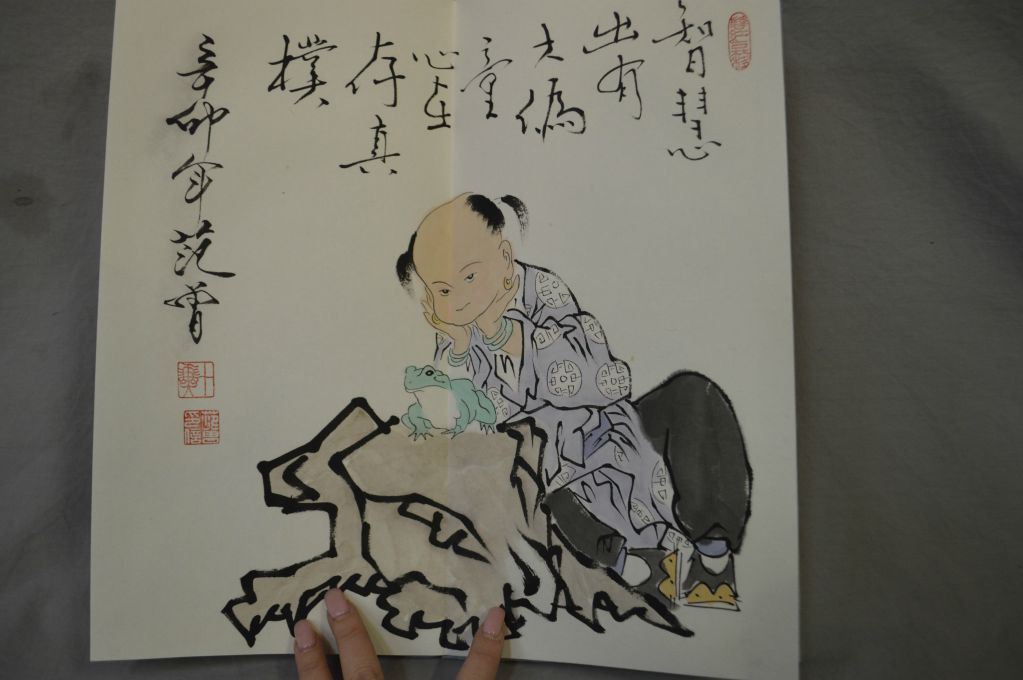 智慧
出有
大偽
童
心在
存真
樸
辛卯年范曾